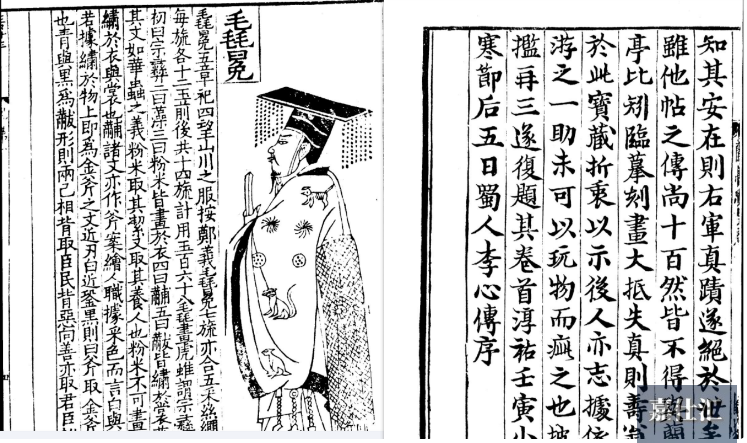 毳冕
毳冕五章祀四望山川之服按鄭義毳冕七旒亦合五采絲繩
每旒各十二玉前後共十四旒計用玉百六十八毳畫虎蜼謂宗彝
初曰宗彝二曰藻三曰粉米皆畫於衣四曰黼五曰黻皆繡於裳
其文如華蟲之義粉米取其絜又取其養人也粉米不可畫
繡於衣與裳也黼諸文亦作斧案繪人職據采色而言白與
若據繡於物上即為金斧之文近刃白近銎黑則曰斧取金斧
也青與黑為黻形則兩己相背取臣民背惡向善亦取君臣
知其安在則右軍真蹟遂絕於世矣
雖他帖之傳尚十百然皆不得與蘭
亭比矧臨摹刻畫大抵失真則壽翁
於此寶藏折衷以示後人亦志據依
游之一助未可以玩物而疵之也披
再三遂復題其卷首淳祐壬寅小
寒節后五日蜀人李心傳序
嘉仕